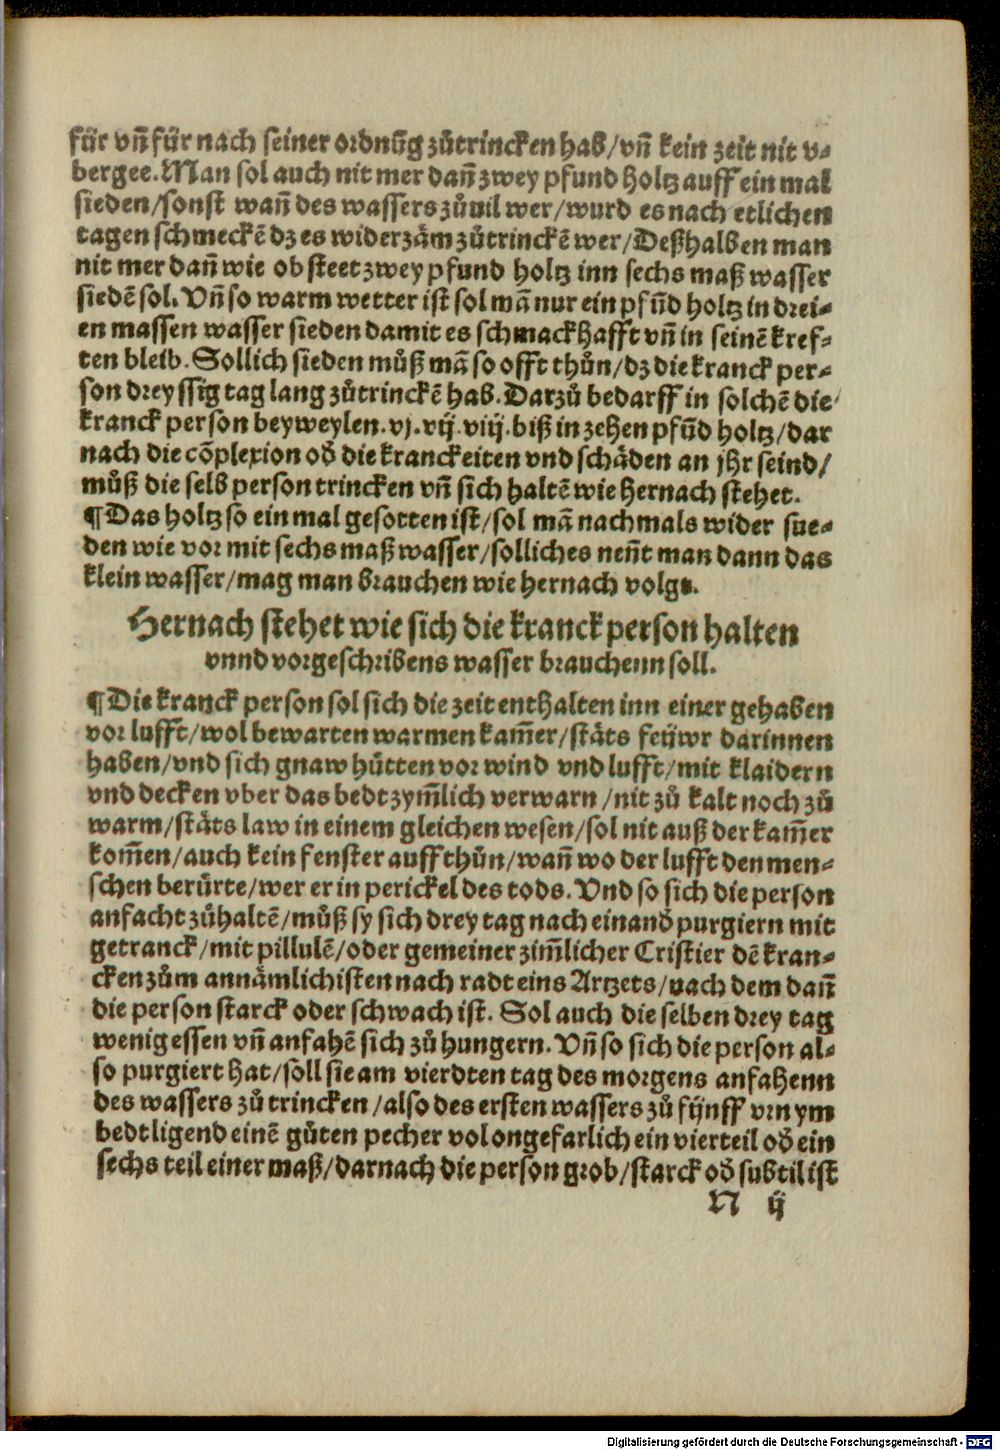 für vñ für nach seiner ordnũg zůtrincken hab/vñ kein zeit nit v⸗
bergee. Man sol auch nit mer dañ zwey pfund holtz auff ein mal
sieden/sonst wañ des wassers zůuil wer/wurd es nach etlichen
tagen schmeckẽ dz es widerzäm zůtrinckẽ wer/Deßhalben man
nit mer dañ wie ob steet zwey pfund holtz inn sechs maß wasser
siedẽ sol. Vñ so warm wetter ist sol mã nur ein pfũd holtz in drei⸗
en massen wasser sieden damit es schmackhafft vñ in seinẽ kref⸗
ten bleib. Sollich sieden můß mã so offt thůn/dz die kranck per⸗
son dreyssig tag lang zůtrinckẽ hab. Darzů bedarff in solchẽ die
kranck person beyweylen. vj. vij. viij. biß in zehen pfũd holtz/dar
nach die cõplexion oď die kranckeiten vnd schäden an jhr seind/
můß die selb person trincken vñ sich haltẽ wie hernach stehet.
¶ Das holtz so ein mal gesotten ist/sol mã nachmals wider sue⸗
den wie vor mit sechs maß wasser/solliches neñt man dann das
klein wasser/mag man brauchen wie hernach volgt.
Hernach stehet wie sich die kranck person halten
vnnd vorgeschribens wasser brauchenn soll.
¶ Die kranck person sol sich die zeit enthalten inn einer gehaben
vor lufft/wol bewarten warmen kam̃er/stäts feüwr darinnen
haben/vnd sich gnaw hütten vor wind vnd lufft/mit klaidern
vnd decken vber das bedt zym̃lich verwarn/nit zů kalt noch zů
warm/stäts law in einem gleichen wesen/sol nit auß der kam̃er
kom̃en/auch kein fenster auffthůn/wañ wo der lufft den men⸗
schen berürte/wer er in perickel des tods. Vnd so sich die person
anfacht zůhaltẽ/můß sy sich drey tag nach einanď purgiern mit
getranck/mit pillulẽ/oder gemeiner zim̃licher Cristier dẽ kran⸗
cken zům annämlichisten nach radt eins Artzets/nach dem dañ
die person starck oder schwach ist. Sol auch die selben drey tag
wenig essen vñ anfahẽ sich zů hungern. Vñ so sich die person al⸗
so purgiert hat/soll sie am vierdten tag des morgens anfahenn
des wassers zů trincken/also des ersten wassers zů fünff vrn ym
bedt ligend einẽ gůten pecher vol ongefarlich ein vierteil oď ein
sechs teil einer maß/darnach die person grob/starck oď subtil ist
N ij
Digitalisierung gefördert durch die Deutsche Forschungsgemeinschaft - DFG